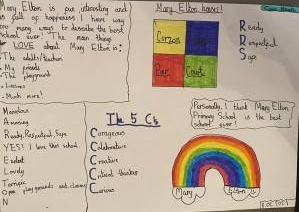 Mary Elton is very interesting and
is full of happiness! I have way
too many ways to describe the best
school ever! The main things
I LOVE about Mary Elton is:
- The adults/teachers
- My friends
- The playground
- Lessons
- Much more!
Mary Elton houses!
Corzon
Court
Ready
Respectful
Safe
Marvelous
Amazing
Ready, Respectful, Safe
YES! I love this school.
Excellent
Lovely
Terrific
Open playgrounds and classes
N
The 5 Cs
Courageous
Collaborative
Creative
Critical thinker
Curious
Personally, I think Mary Elton
Primary School is the best
school ever!
Mary
Elton